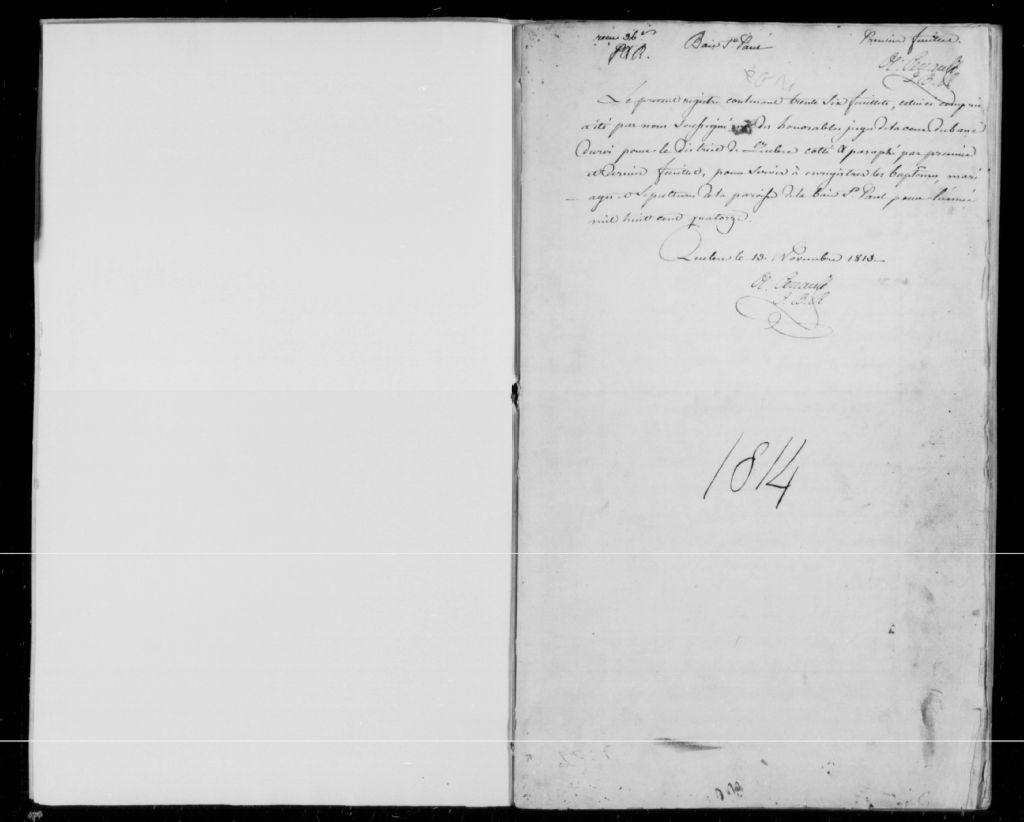 Baie St Paul
Premier feuillet.
Le present registre contenant trente six feuillets, celui ci compris
a été par nous soussigné des honorables juges de la cour du banc
du roi pour le district de Quebec cotté & paraphé par premier
et dernier feuillet, pour servir à enregistrer les baptemes, mari
ages & sepultures de la paroisse de la baie St Paul pour l'année
mil huit cent quatorze.
Quebec le 13. Novembre 1813
J. B. R
1814